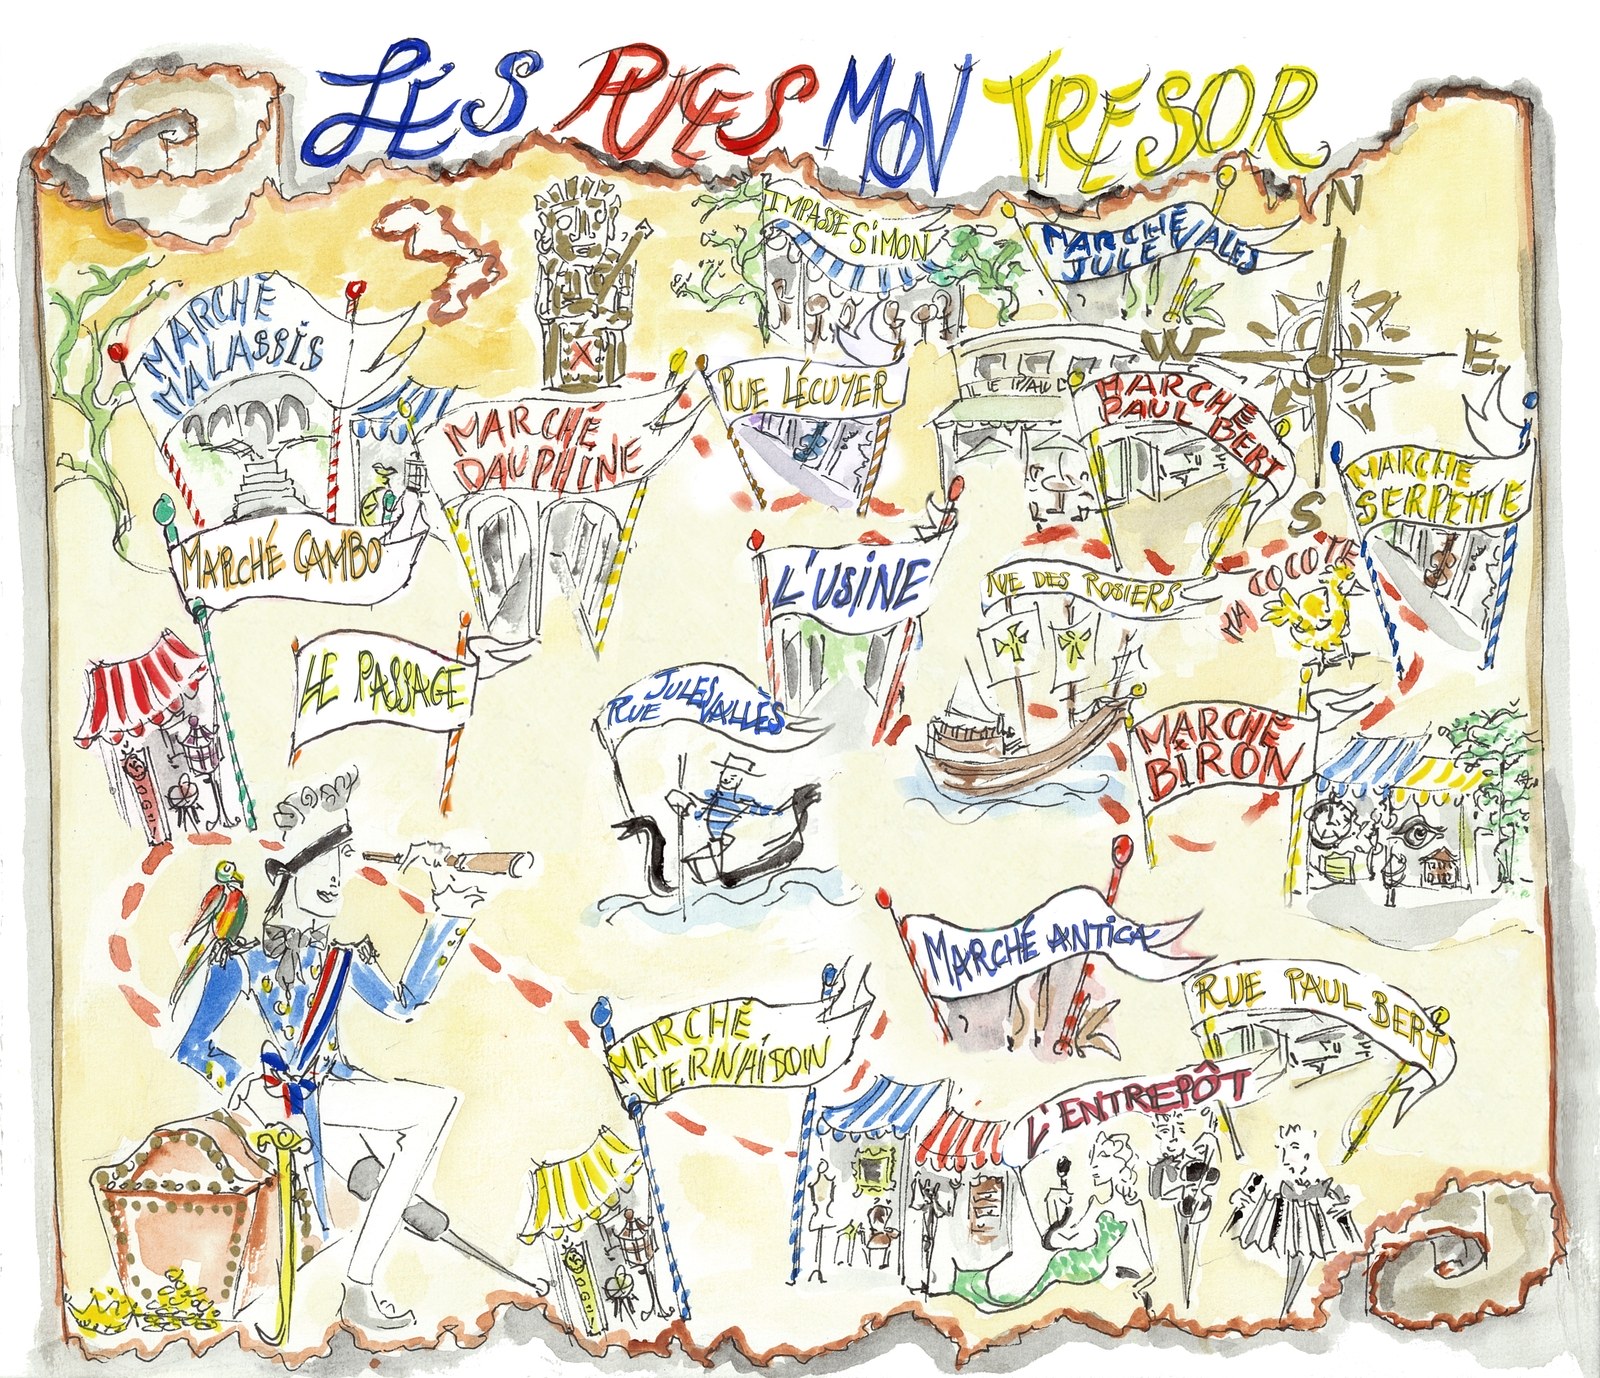 LES PUCES MON TRESOR
IMPASSE SIMON
MARCHÉ
JULE VALES
N
W
E
S
MARCHÉ
MALASSIS
RUE LÉCUYER
MARCHÉ
DAUPHINE
X
LE PAUL
MARCHÉ
PAUL BERT
MARCHE
SERPETTE
MARCHÉ CAMBO
L'USINE
RUE DES ROSIERS
MA COCOTTE
LE PASSAGE
RUE JULES VALLÈS
MARCHÉ
BIRON
MARCHÉ ANTICA
RUE PAUL BERT
MARCHÉ
VERNAISON
L'ENTREPÔT